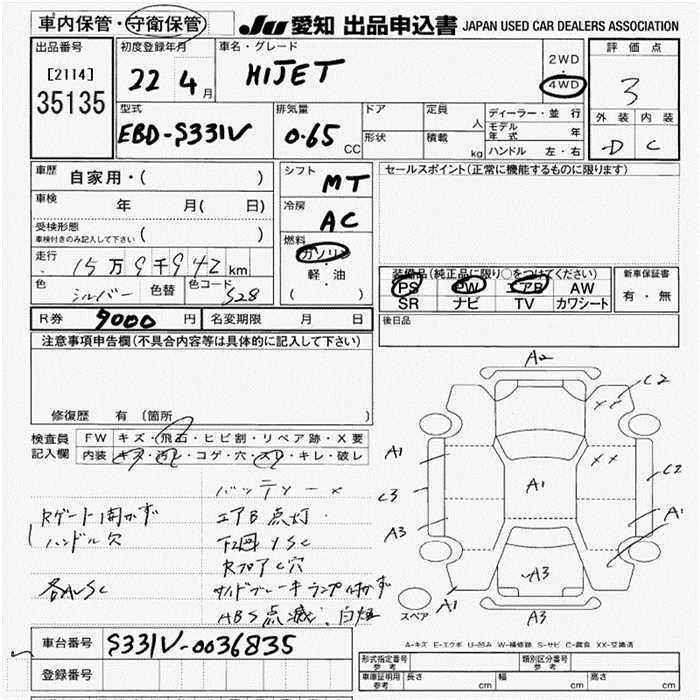 車内保管・守衛保管 JU 愛知 出品申込書 JAPAN USED CAR DEALERS ASSOCIATION
出品番号
[2114]
35135
初度登録年月
22 4月
車名・グレード
HIJET
2WD
・
4WD
評価点
3
外装 内装
D C
型式
EBD-S331V
排気量
0.65 CC
ドア
形状
定員 人
積載 kg
ディーラー・並行
モデル年式 年
ハンドル 左・右
車歴
自家用・( )
車検 年 月( 日)
受検形態
車検付きのみ記入して下さい ( )
走行
15万9千942km
色 シルバー 色替 色コード S28
シフト
MT
冷房
AC
燃料
ガソリン
・
軽・油
( )
セールスポイント(正常に機能するものに限ります)
装備品(純正品に限り○をつけてください)
PS PW エアB AW
SR ナビ TV カワシート
新車保証書
有・無
R券 9000円 名変期限 月 日
後日品
注意事項申告欄(不具合内容等は具体的に記入して下さい)
修復歴 有 〔箇所 〕
検査員記入欄
FW キズ・飛石・ヒビ割・リペア跡・X要
内装 キズ・汚レ・コゲ・穴・スレ・キレ・破レ
バッテリー×
Rゲート開かず エアB点灯
ハンドル欠
RフロアC穴
サイドブレーキランプ付かず
ABS点滅、白煙
A2
C2
A1
C3
A3
××
A1
C2
A1
A3
A1
A3
スペア
A-キズ E-エクボ U-凹み W-補修跡 S-サビ C-腐食 XX-交換済
車台番号 S331V-0036835
登録番号
形式指定番号 参考
類別区分番号 参考
車庫証明用 参考 長さ cm 幅 cm 高さ cm